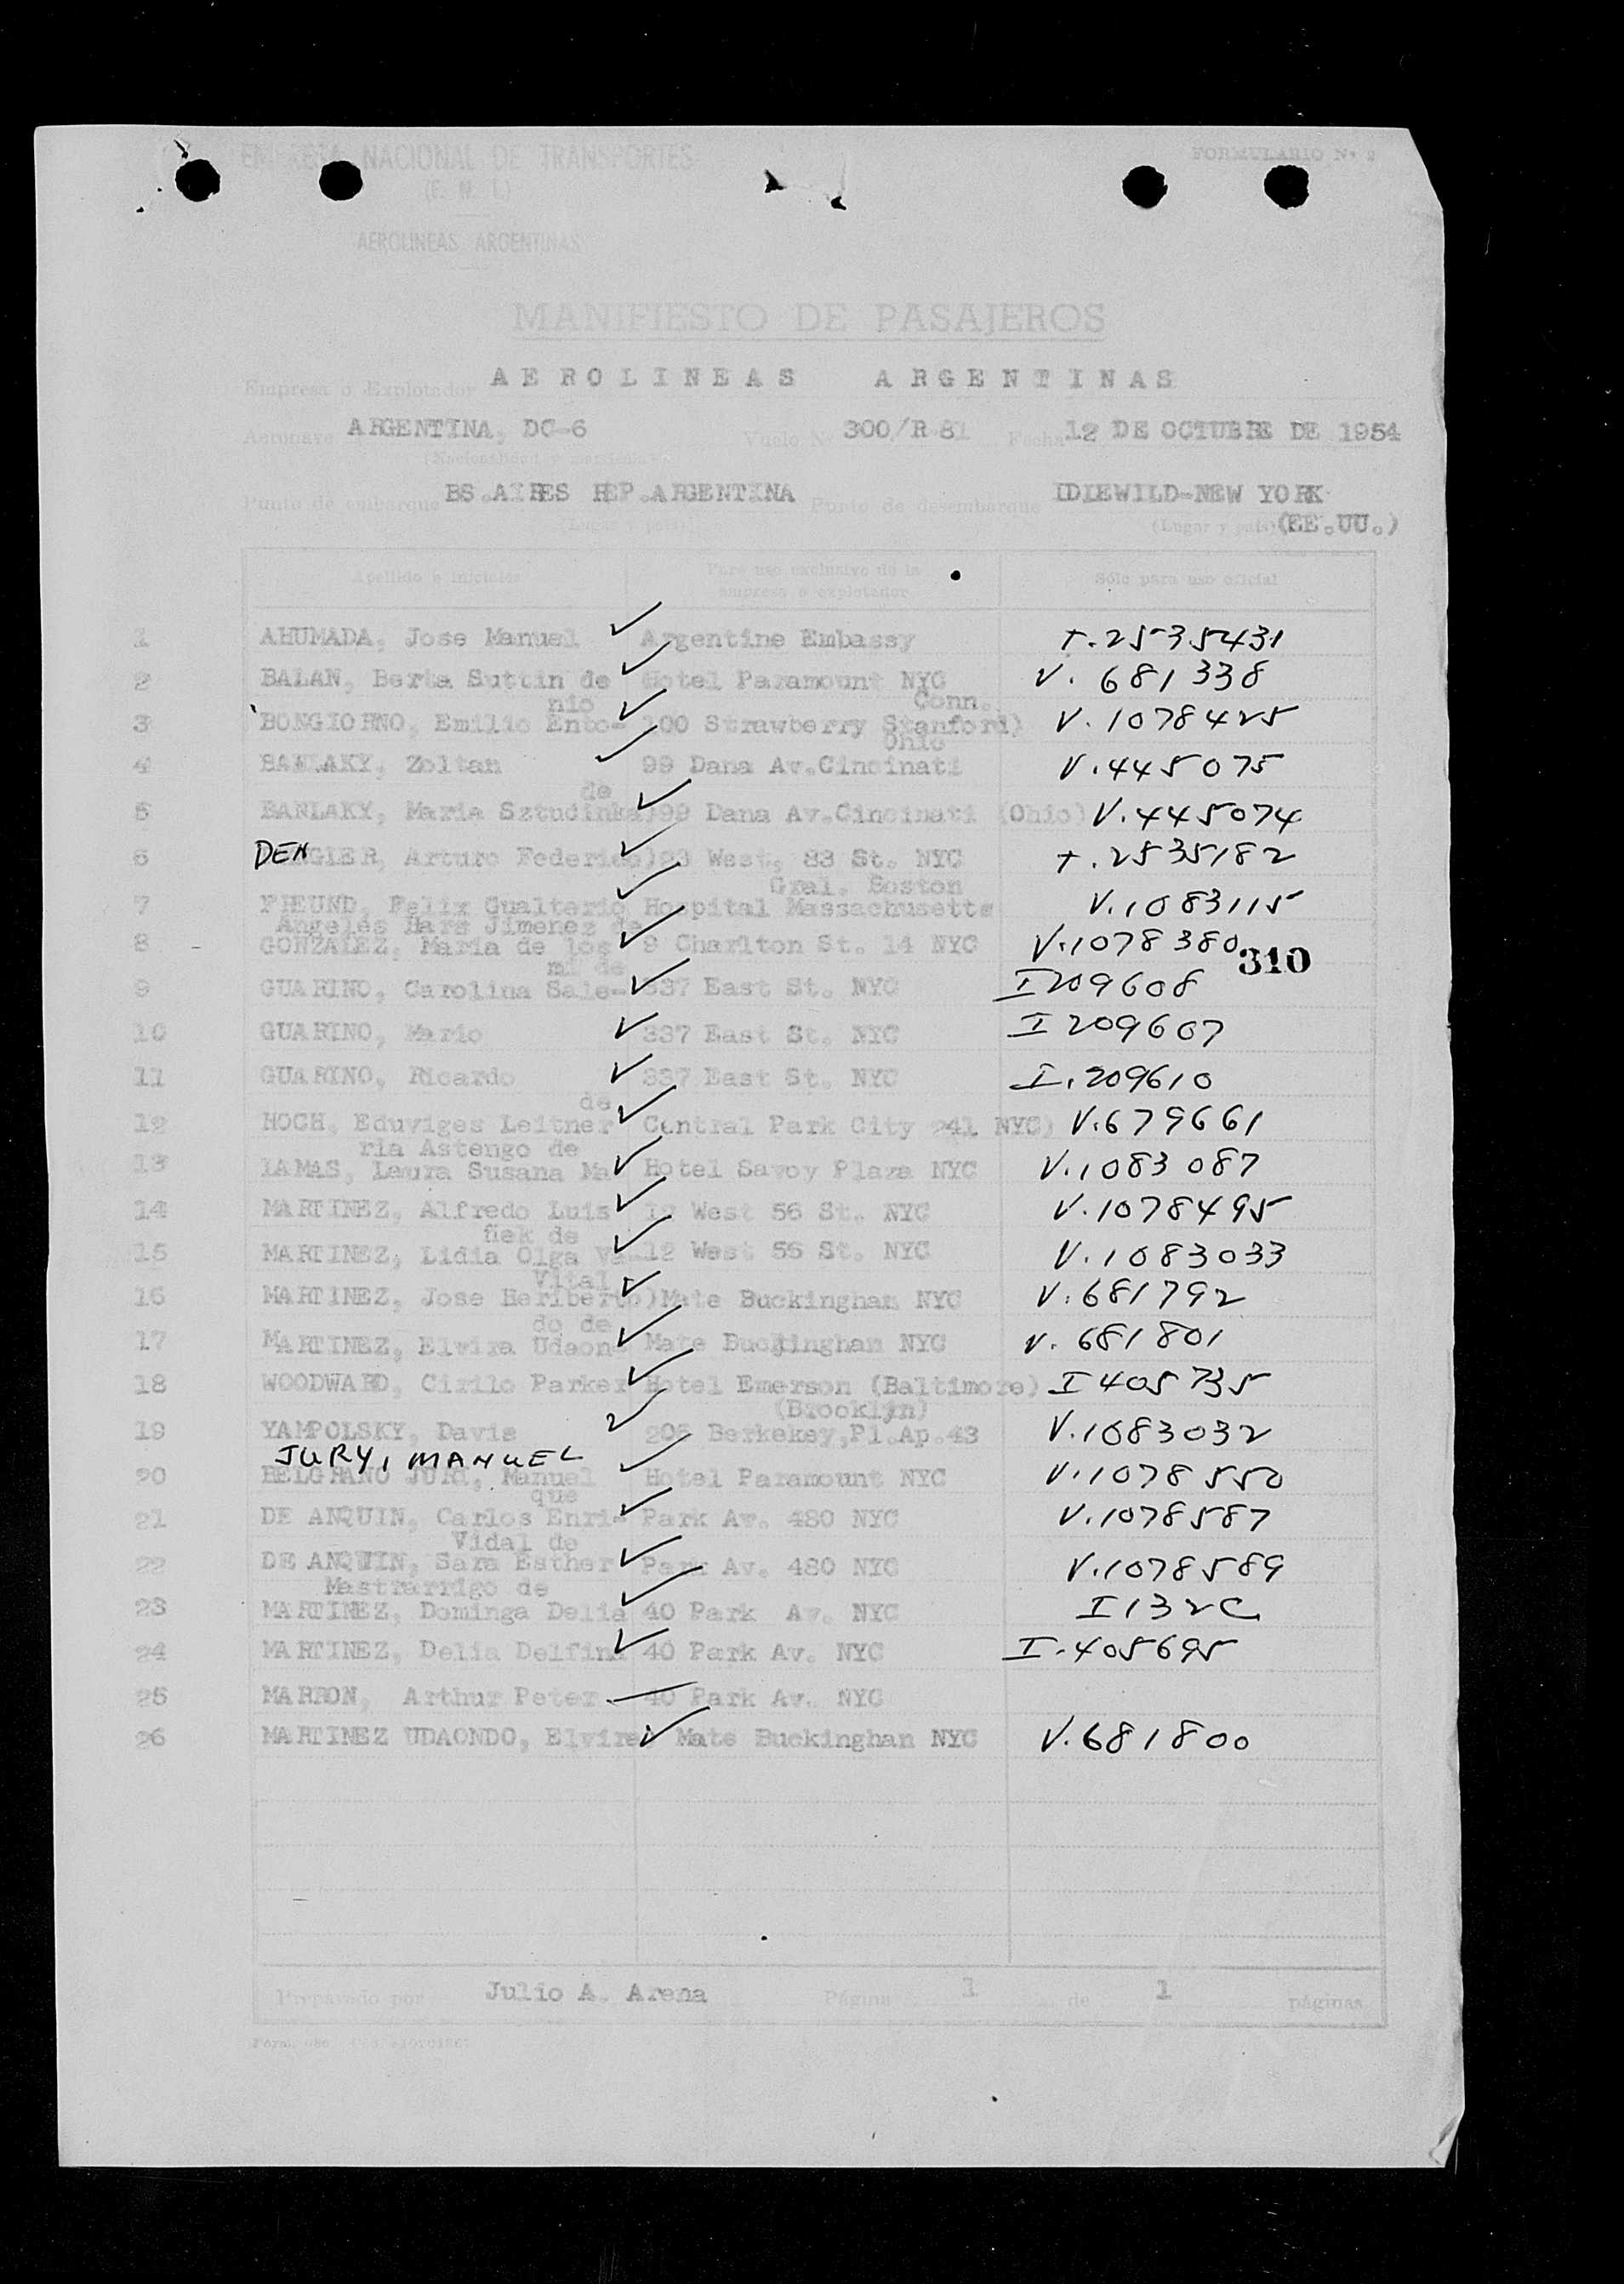 EMPRESA NACIONAL DE TRANSPORTES
FORMULARIO Nº 2
(E. N. T.)
AEROLINEAS ARGENTINAS
MANIFIESTO DE PASAJEROS
Empresa o Explotador AEROLINEAS ARGENTINAS
Aeronave ARGENTINA, DC-6 Vuelo Nº 300/R 81 Fecha 12 DE OCTUBRE DE 1954
(Nacionalidad y matrícula)
Punto de embarque BS.AIRES REP.ARGENTINA Punto de desembarque IDLEWILD-NEW YORK
(Lugar y país) (Lugar y país) (EE.UU.)
Apellido e iniciales Para uso exclusivo de la Sólo para uso oficial
empresa o explotador
1 AHUMADA, Jose Manuel Argentine Embassy T.2535431
2 BALAN, Berta Suttin de Hotel Paramount NYC V. 681338
nio Conn.
3 BONGIORNO, Emilio Ento- 100 Strawberry Stanford) V. 1078425
Ohio
4 BANLAKY, Zoltan 99 Dana Av.Cincinati V.445075
de
5 BANLAKY, Maria Sztudinka)99 Dana Av.Cincinati (Ohio) V.445074
6 DENGLER, Arturo Federico) 23 West, 83 St. NYC T.2535182
Gral. Boston
7 FREUND, Felix Gualterio Hospital Massachusetts V.1083115
Angeles Hars Jimenez de
8 GONZALEZ, Maria de los 9 Charlton St. 14 NYC V.1078380
310
mi de
9 GUARINO, Carolina Sale- 337 East St. NYC I209608
10 GUARINO, Mario 337 East St. NYC I 209607
11 GUARINO, Ricardo 337 East St. NYC I.209610
de
12 HOCH, Eduviges Leitner Central Park City 241 NYC) V.679661
ria Astengo de
13 LAMAS, Laura Susana Ma Hotel Savoy Plaza NYC V.1083087
14 MARTINEZ, Alfredo Luis 12 West 56 St. NYC V.1078495
ñek de
15 MARTINEZ, Lidia Olga Va- 12 West 56 St. NYC V.1083033
Vital
16 MARTINEZ, Jose Heriberto)Mate Buckinghan NYC V.681792
do de
17 MARTINEZ, Elvira Udaon- Mate Buckinghan NYC V. 681801
18 WOODWARD, Cirilo Parker Hotel Emerson (Baltimore) I 405735
(Brooklyn)
19 YAMPOLSKY, Davis 205 Berkekey,Pl.Ap.43 V.1083032
JURY, MANUEL
20 BELGRANO JURI, Manuel Hotel Paramount NYC V.1078550
que
21 DE ANQUIN, Carlos Enri- Park Av. 480 NYC V.1078587
Vidal de
22 DE ANQUIN, Sara Esther Park Av. 480 NYC V.1078589
Mastrarrigo de
23 MARTINEZ, Dominga Delia 40 Park Av. NYC I132C
24 MARTINEZ, Delia Delfina 40 Park Av. NYC I.405695
25 MARRON, Arthur Peter 40 Park Av. NYC
26 MARTINEZ UDAONDO, Elvira) Mate Buckinghan NYC V.681800
Preparado por Julio A. Arena Página 1 de 1 páginas